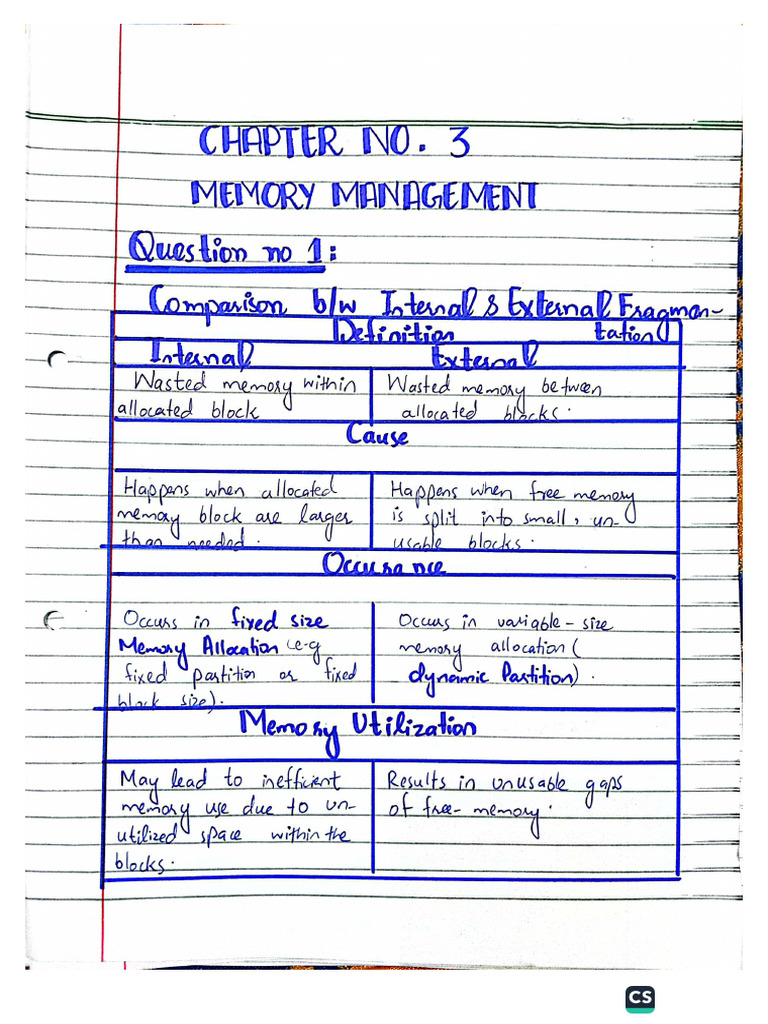 CHAPTER NO. 3
MEMORY MANAGEMENT
Question no 1:
Comparison b/w Internal & External Fragmen-
Definition tation
Internal External
Wasted memory within Wasted memory between
allocated block allocated blocks.
Cause
Happens when allocated Happens when free memory
memory block are larger is split into small, un-
than needed. usable blocks.
Occurance
Occurs in fixed size Occurs in variable-size
Memory Allocation (e.g memory allocation (
fixed partition or fixed dynamic Partition).
block size).
Memory Utilization
May lead to inefficient Results in unusable gaps
memory use due to un- of free-memory.
utilized space within the
blocks.
CS